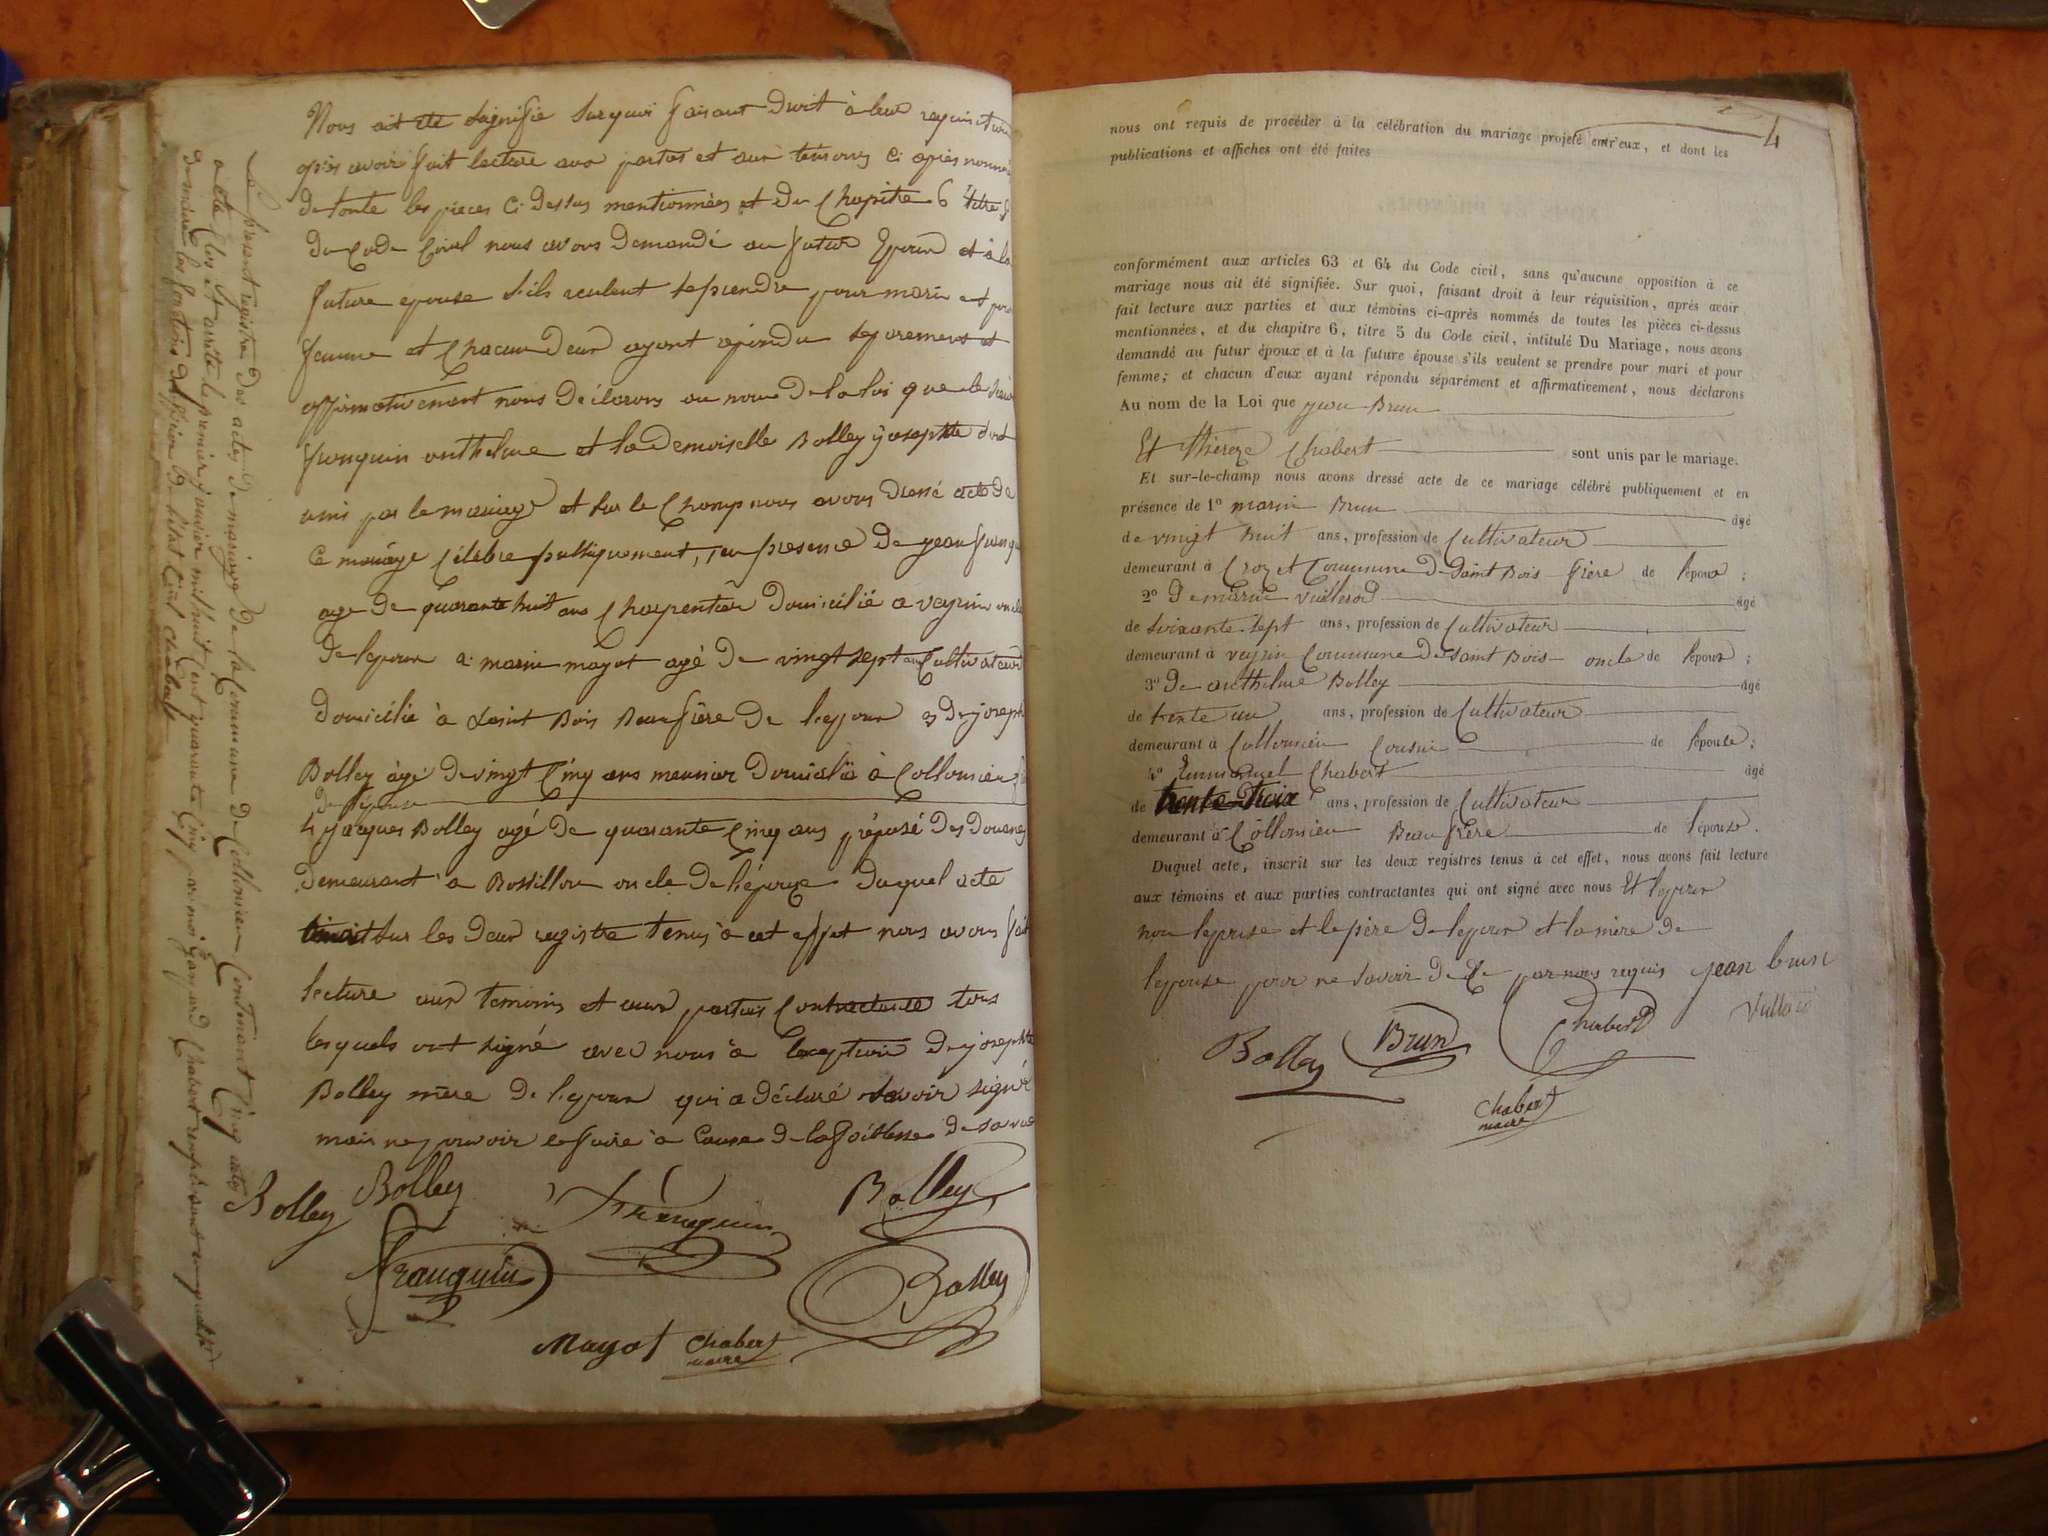 Nous ait été signifie sur quoi faisant droit à leur requisition
après avoir fait lecture aux parties et aux témoins ci après nommés
de toute les pieces ci dessus mentionnées et du Chapitre 6 titre 5
du Code Civil nous avons demandé au futur Epoux et à la
future epouse s'ils veulent se prendre pour mari et pour
femme et chacun d'eux ayant répondu séparement et
affirmativement nous déclarons au nom de la loi que le sieur
franquin anthelme et la demoiselle Bolley josephte sont
unis par le mariage et sur le Champ nous avons dressé acte de
Ce mariage Célébré publiquement, en presence de jean franquin
age de quarante huit ans Charpentier Domicilié a veyrin oncle
de lepoux 2 marin mayot agé de vingt sept ans Cultivateur
Domicilié à saint Bois Beaufrère de lepoux 3 de joseph
Bolley âgé de vingt Cinq ans meunier Domicilié à Collomieu
de lépouse
4 jacques Bolley agé de quarante Cinq ans préposé des Douanes
demeurant a Rossillon oncle de l'épouse duquel acte
sur les deux registre tenus à cet effet nous avons fait
lecture aux temoins et aux parties Contractante tous
lesquels ont signé avec nous à lexception de josephte
Bolley mère de lepoux qui a déclaré savoir signé
mais ne pouvoir le faire à Cause de la foiblesse de sa vue
Bolley Bolley franquin Bolley
franquin Bolley
Mayot Chabert
maire
Le present registre des actes de mariage de la Commune de Collomieu Contenant Cinq actes
a été Clos et arrêté le premier janvier mil huit Cent quarante Cinq par moi Chabert remplissant en qualité de
maire les fonctions d'officier de l'état Civil Chabert
4
nous ont requis de procéder à la célébration du mariage projeté entr'eux, et dont les
publications et affiches ont été faites
conformément aux articles 63 et 64 du Code civil, sans qu'aucune opposition à ce
mariage nous ait été signifiée. Sur quoi, faisant droit à leur réquisition, après avoir
fait lecture aux parties et aux témoins ci-après nommés de toutes les pièces ci-dessus
mentionnées, et du chapitre 6, titre 5 du Code civil, intitulé Du Mariage, nous avons
demandé au futur époux et à la future épouse s'ils veulent se prendre pour mari et pour
femme; et chacun d'eux ayant répondu séparément et affirmativement, nous déclarons
Au nom de la Loi que jean Brun
Et thereze Chabert sont unis par le mariage.
Et sur-le-champ nous avons dressé acte de ce mariage célébré publiquement et en
présence de 1º marin Brun âgé
de vingt huit ans, profession de Cultivateur
demeurant à Croz et Commune de Saint Bois frère de l'époux;
2º de marin Vuillerod âgé
de soixante sept ans, profession de Cultivateur
demeurant à veyrin Commune de Saint Bois oncle de l'époux;
3º de anthelme Bolley âgé
de trente un ans, profession de Cultivateur
demeurant à Collomieu Cousin de l'épouse;
4º Emmanuel Chabert âgé
de trente-Troix ans, profession de Cultivateur
demeurant à Collomieu Beaufrère de l'épouse.
Duquel acte, inscrit sur les deux registres tenus à cet effet, nous avons fait lecture
aux témoins et aux parties contractantes qui ont signé avec nous Et lepoux
non lepouse et le père de lepoux et la mère de
lepouse pour ne savoir de ce par nous requis jean brun
Bolley Brun Chabert
Chabert
maire